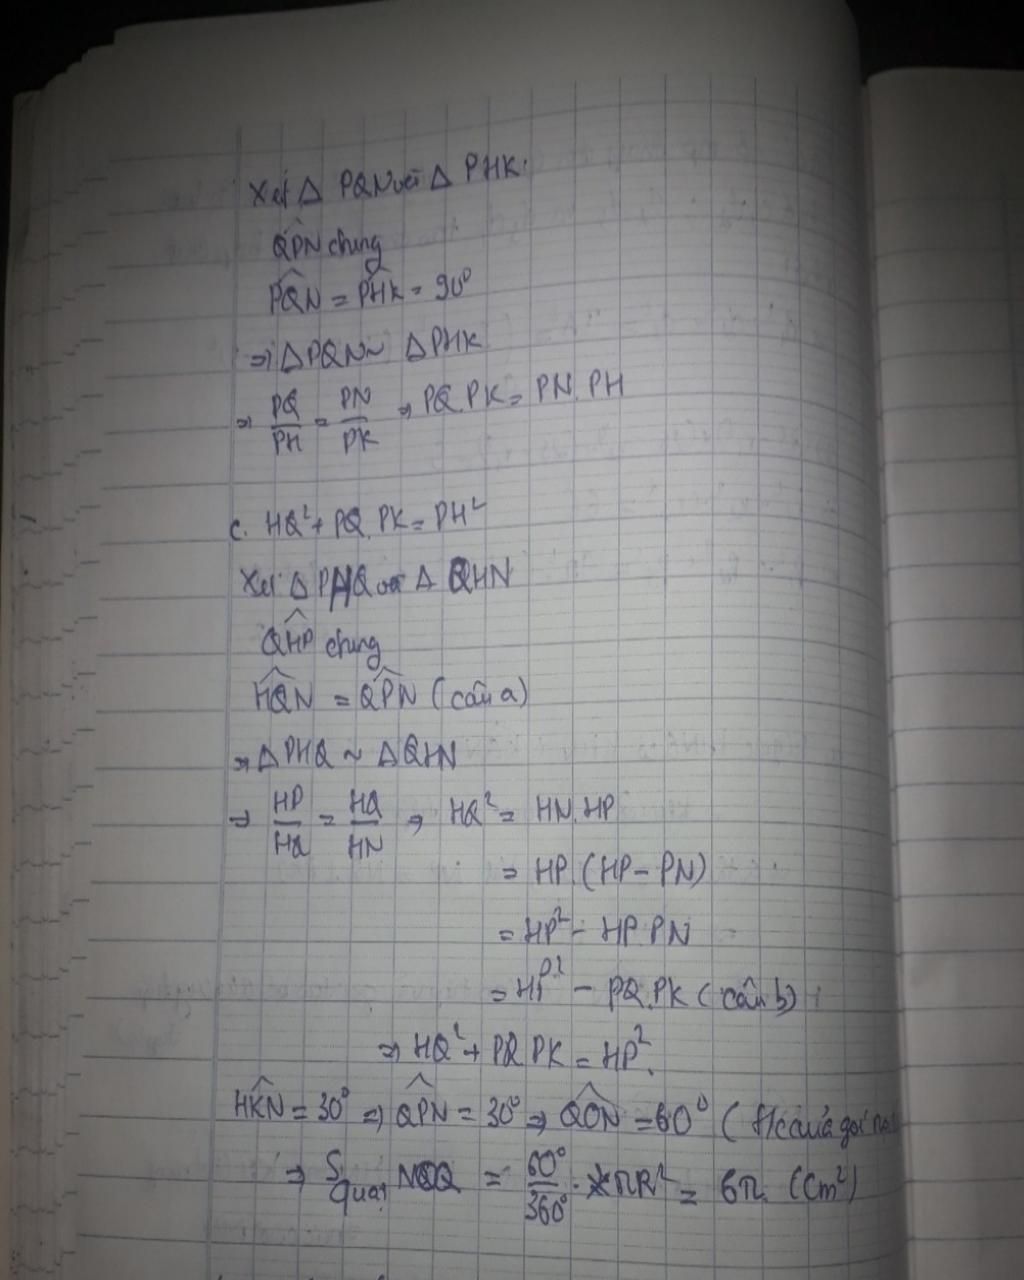 Xét Δ PQN với Δ PHK:
QPN chung
PQN = PHK = 90⁰
⇒ ΔPQN ~ ΔPHK
⇒ PQ/PH = PN/PK ⇒ PQ.PK = PN.PH
c. HQ² + PQ.PK = PH²
Xét Δ PHQ và Δ QHN
QHP chung
HQN = QPN (câu a)
⇒ ΔPHQ ~ ΔQHN
⇒ HP/HQ = HQ/HN ⇒ HQ² = HN.HP
= HP.(HP - PN)
= HP² - HP.PN
= HP² - PQ.PK (câu b)
⇒ HQ² + PQ.PK = HP².
HKN = 30⁰ ⇒ QPN = 30⁰ ⇒ QON = 60⁰ (
⇒ S quạt NOQ = 60⁰/360⁰ . πR² = 6π (cm²)